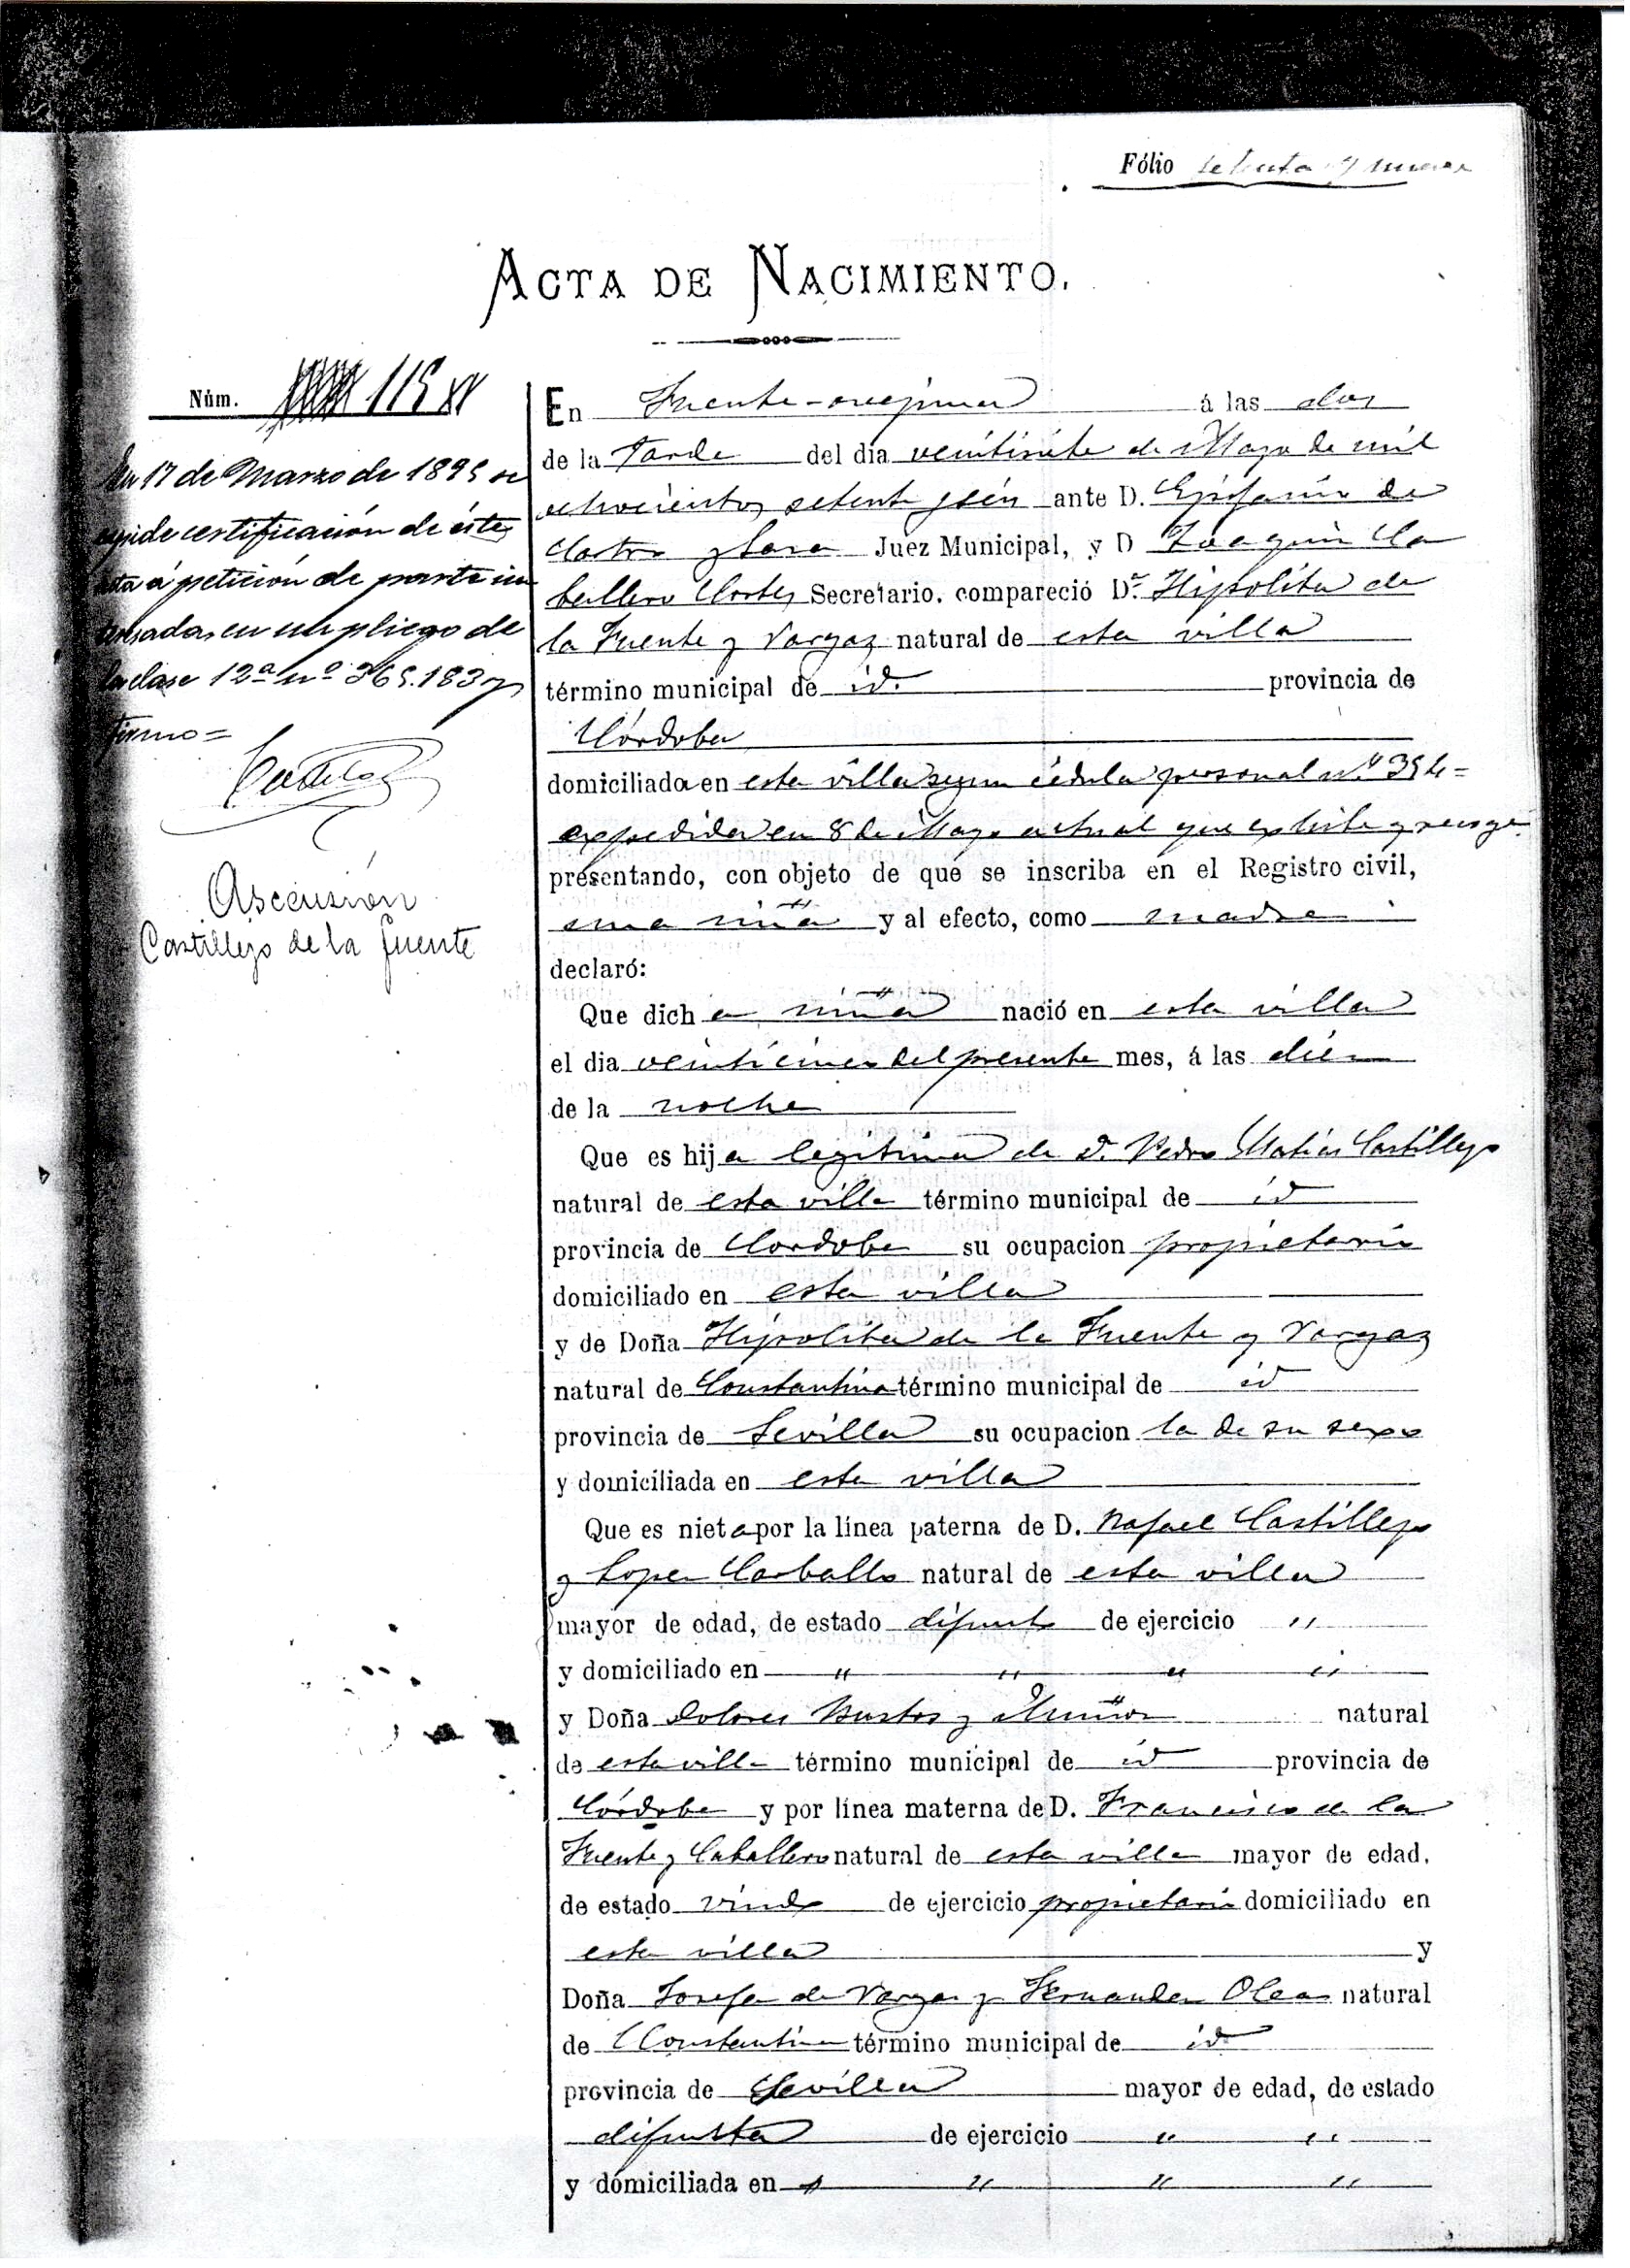 Fólio setenta y nueve
ACTA DE NACIMIENTO.
Núm. 115
En 17 de Marzo de 1895 se
expide certificación de ésta
acta á petición de parte in
teresada, en un pliego de
la clase 12ª nº 365.183 y
firmo=
Ascensión
Castillejo de la fuente
En Fuente-ovejuna á las dos
de la tarde del dia veintisiete de Mayo de mil
ochocientos setenta y seis ante D. Epifanio de
Castro y Lara Juez Municipal, y D Joaquin Ca
ballero Cortes Secretario. compareció D.ª Hipolita de
la Fuente y Vargaz natural de esta villa
término municipal de id. provincia de
Córdoba
domiciliada en esta villa segun cédula personal n.º 354=
expedida en 8 de Mayo actual que exhibe y recoge
presentando, con objeto de que se inscriba en el Registro civil,
una niña y al efecto, como madre
declaró:
Que dich a niña nació en esta villa
el dia veinticinco del presente mes, á las diez
de la noche
Que es hija legitima de D. Pedro Matias Castillejo
natural de esta villa término municipal de id
provincia de Cordoba su ocupacion propietario
domiciliado en esta villa
y de Doña Hipolita de la Fuente y Vargaz
natural de Constantina término municipal de id
provincia de Sevilla su ocupacion la de su sexo
y domiciliada en esta villa
Que es nieta por la línea paterna de D. Rafael Castillejo
y Lopez Carballo natural de esta villa
mayor de edad, de estado difunto de ejercicio "
y domiciliado en " " " "
y Doña Dolores Bustos y Muñoz natural
de esta villa término municipal de id provincia de
Córdoba y por línea materna de D. Francisco de la
Fuente y Caballero natural de esta villa mayor de edad,
de estado viudo de ejercicio propietario domiciliado en
esta villa y
Doña Josefa de Vargas y Fernandez Olea natural
de Constantina término municipal de id
provincia de Sevilla mayor de edad, de estado
difunta de ejercicio " "
y domiciliada en " " " "